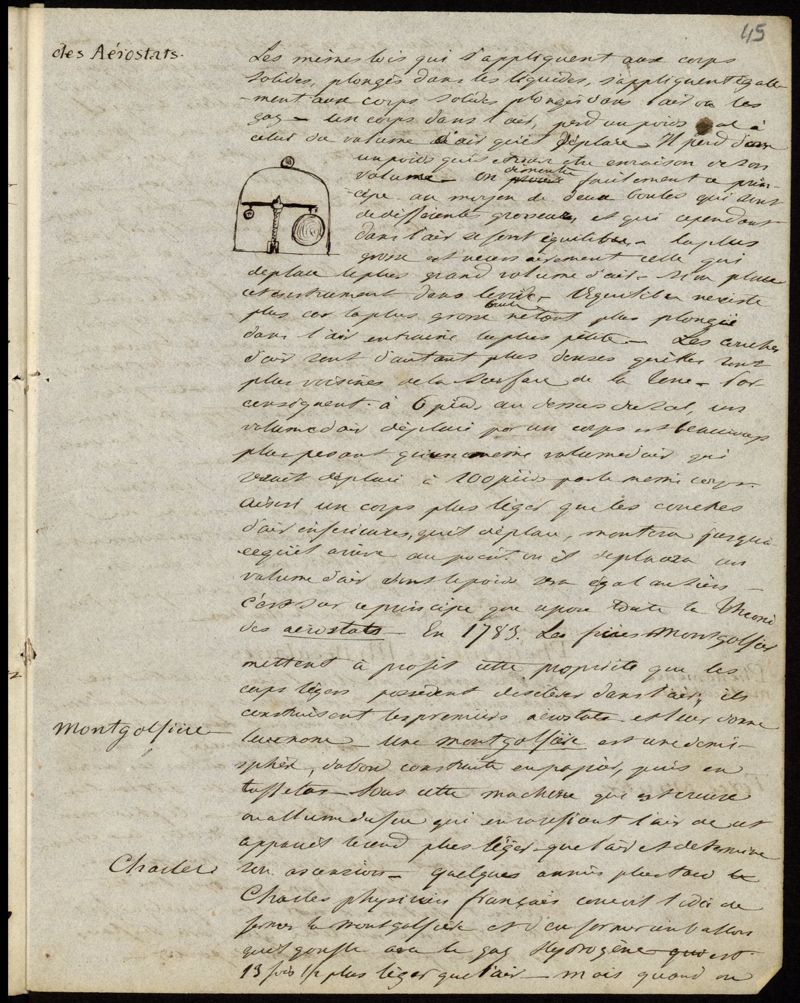 45
des Aérostats.
Les mêmes lois qui s'appliquent aux corps
solides, plongés dans les liquides, s'appliquent égale
-ment aux corps solides plongés dans l'air ou les
gaz — un corps dans l'air, perd un poids égal à
celui du volume d'air qu'il déplace — Il perd donc
un poids qui est en raison de son
volume — on démontre facilement ce prin-
cipe au moyen de deux boules qui sont
de différentes grosseurs et qui cependant
dans l'air se font équilibre — la plus
grosse est nécessairement celle qui
déplace le plus grand volume d'air — si on place
cet instrument dans le vide — l'équilibre n'existe
plus car la plus grosse boule n'étant plus plongée
dans l'air entraine la plus petite — Les couches
d'air sont d'autant plus denses qu'elles sont
plus voisines de la surface de la Terre — Par
conséquent à 6 pieds au dessus du sol, un
volume d'air déplacé par un corps est beaucoup
plus pesant qu'un même volume d'air qui
serait déplacé à 100 pieds par le même corps —
ainsi un corps plus léger que les couches
d'air inférieures, qu'il déplace, montera jusqu'à
ce qu'il arrive au point où il déplacera un
volume d'air dont le poids sera égal au sien —
c'est sur ce principe que repose toute la Théorie
des aérostats — En 1783. Les frères Montgolfier
mettent à profit cette propriété que les
corps légers possèdent de s'élever dans l'air, ils
construisent les premiers aérostats et leur donne
leur nom — Une montgolfière est une demi-
Montgolfière —
sphère, d'abord construite en papier, puis en
taffetas — Sous cette machine qui est creuse
on allume du feu qui en raréfiant l'air de cet
appareil le rend plus léger que l'air et détermine
son ascension — quelques années plus tard
Charles
Charles physicien français conçut l'idée de
fermer la montgolfière et d'en former un ballon
qu'il gonfle avec le gaz Hydrogène qui est
13 fois 1/2 plus léger que l'air — mais quand on